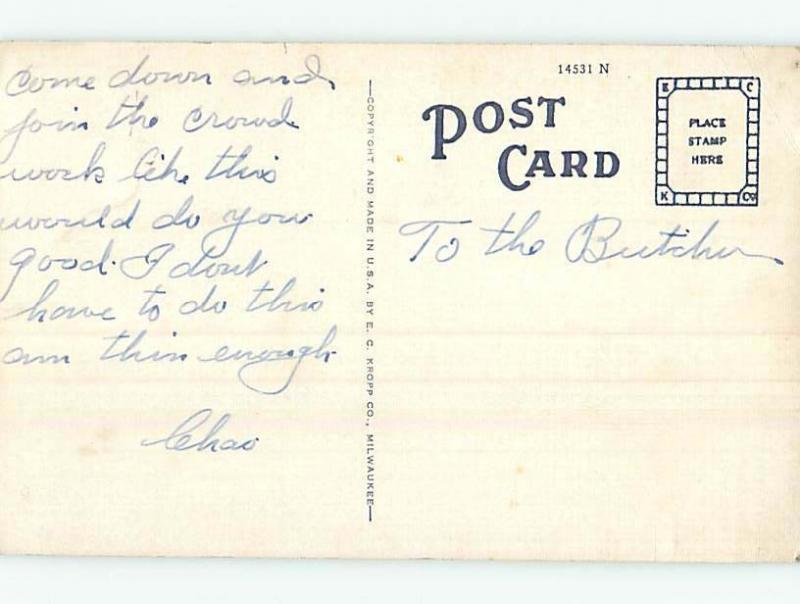 come down and
join the crowd
work like this
would do you
good. I dont
have to do this
am thin enough
Chas
COPYRIGHT AND MADE IN U.S.A. BY E. C. KROPP CO., MILWAUKEE
14531 N
POST
CARD
E C
PLACE
STAMP
HERE
K Co
To the Butcher